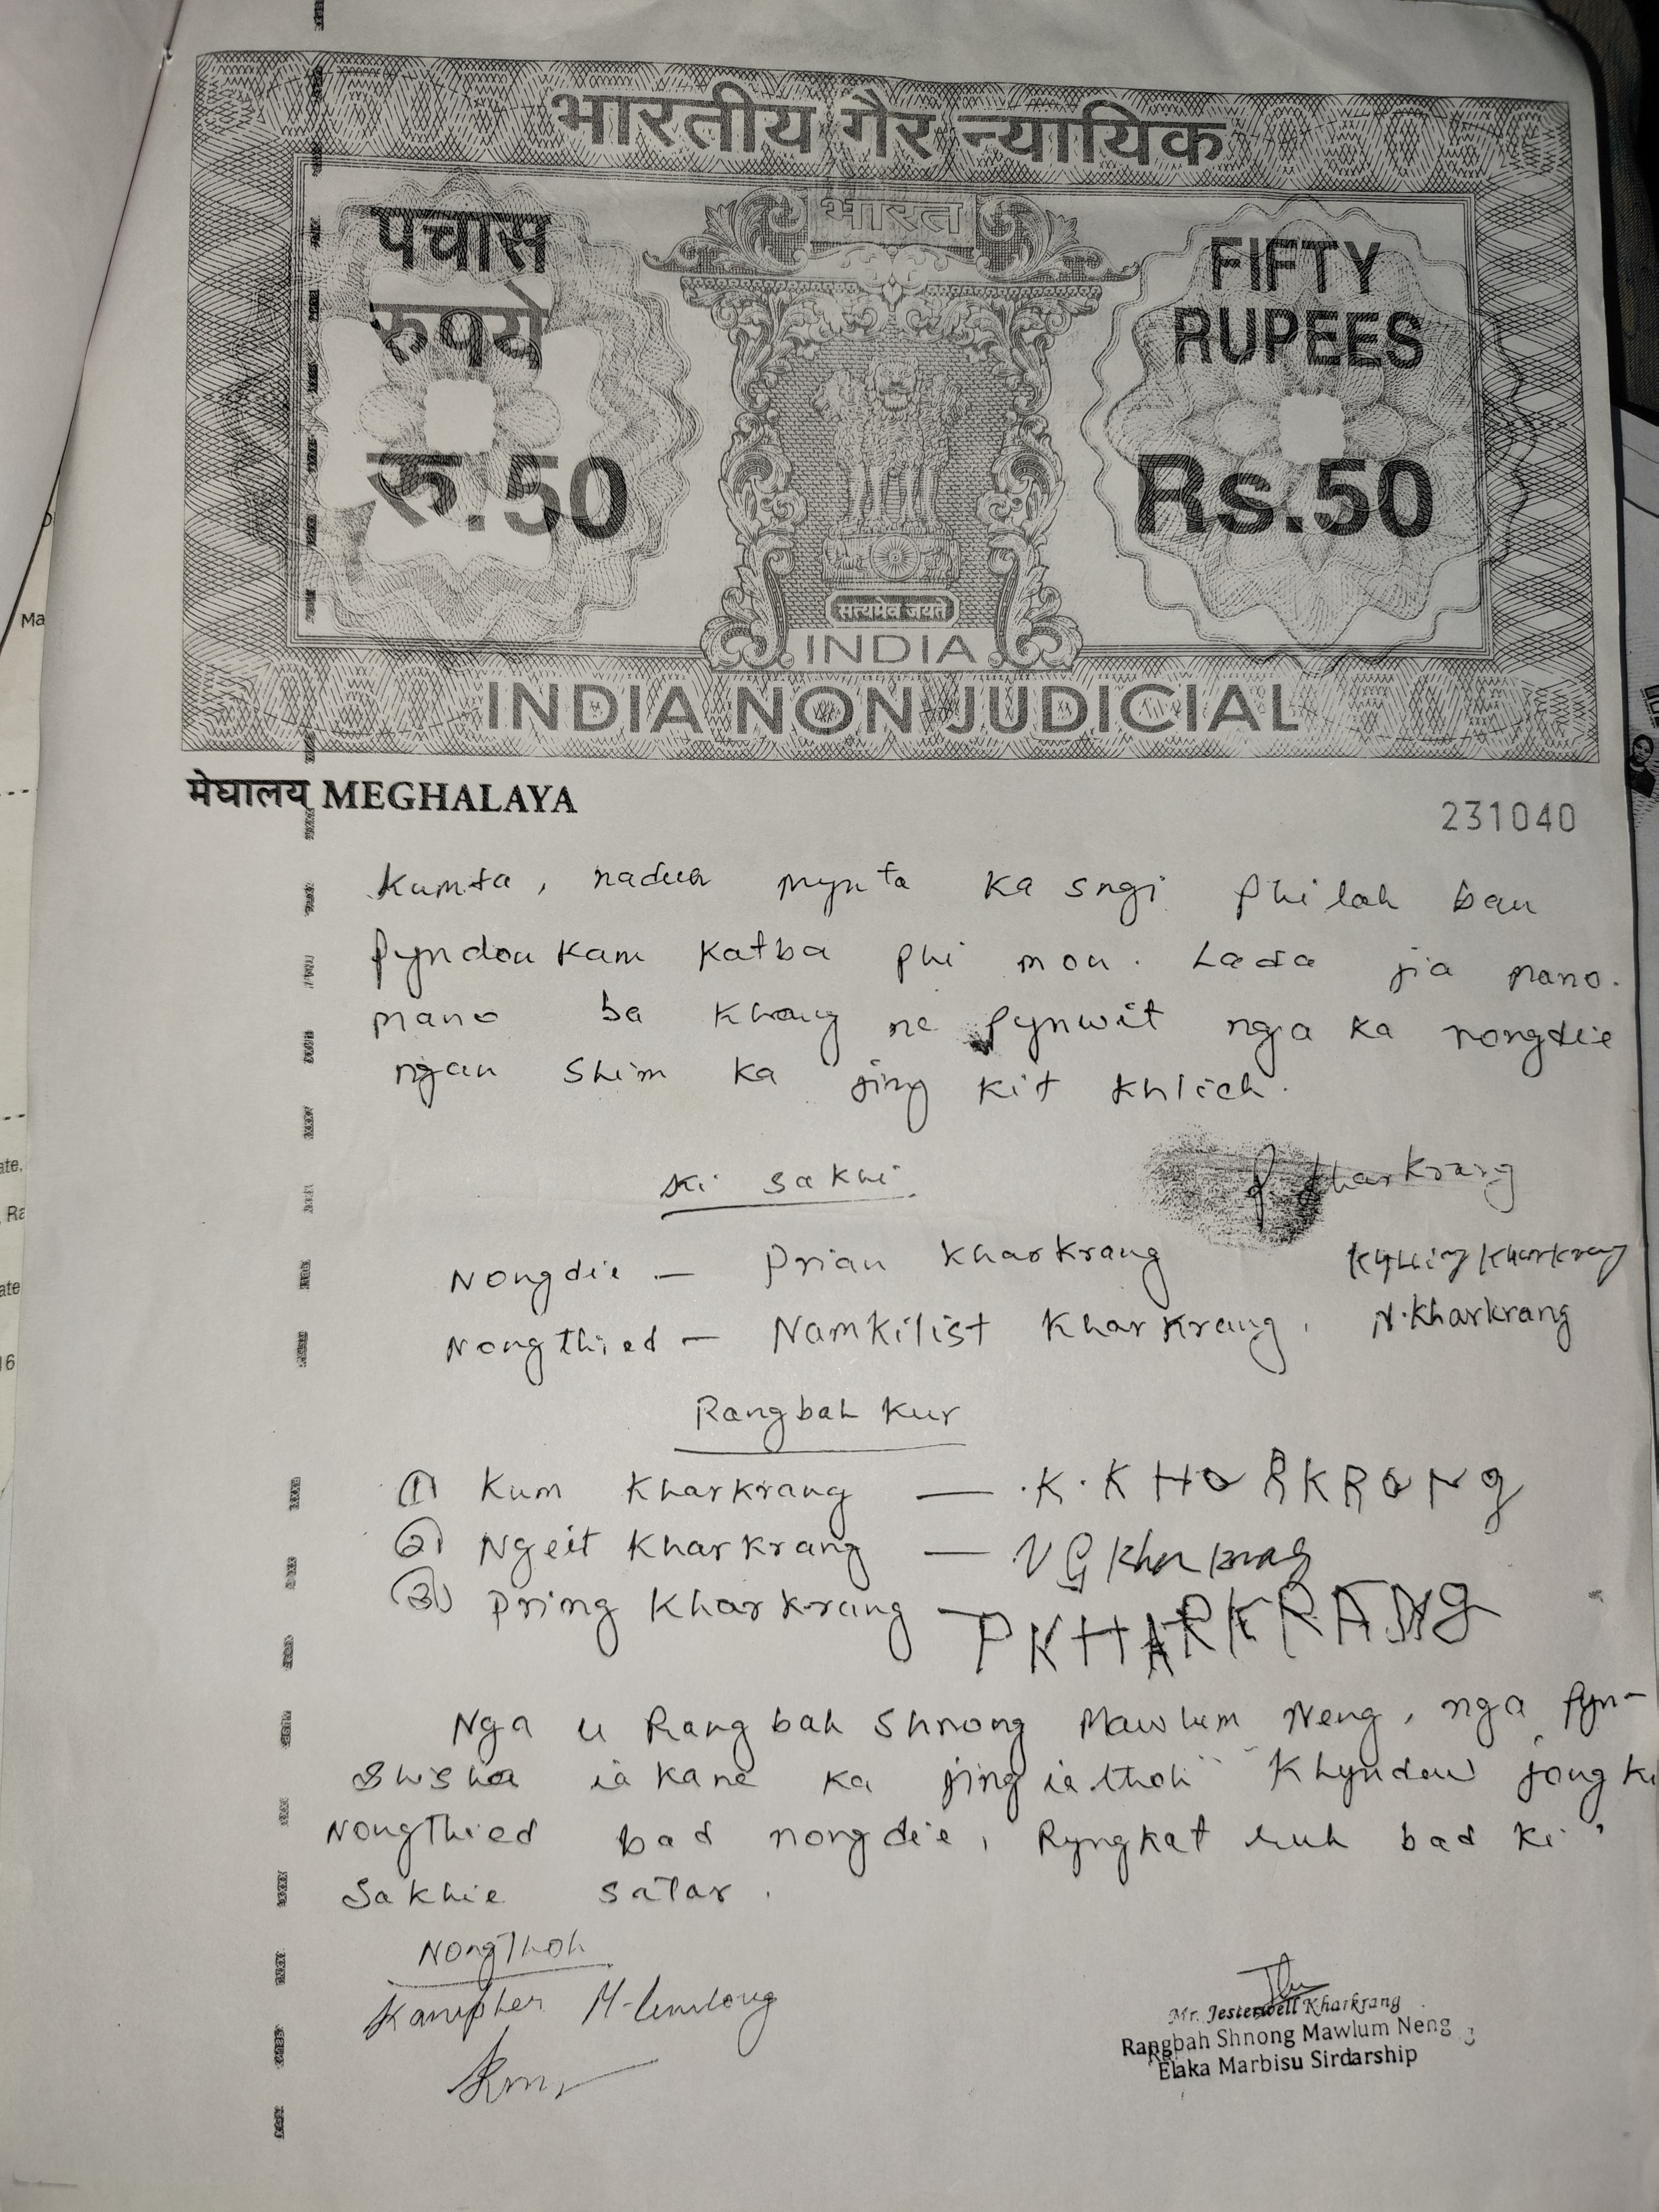 भारतीय गैर न्यायिक
भारत
पचास
रुपये
रु.50
FIFTY
RUPEES
Rs.50
सत्यमेव जयते
INDIA
INDIA NON JUDICIAL
मेघालय MEGHALAYA
231040
Kumta, naduh mynta ka sngi phi lah ban
pyndonkam katba phi mon. Lada jia mano.
mano ba khang ne pynwit nga ka nongdie
ngan shim ka jing kit khlieh.
Ki sakhi.
P. Kharkrang
Nongdie — Prian Kharkrang
Kharkrang
Nongthied — Namkilist Kharkrang, N. Kharkrang
Rangbah Kur
① Kum Kharkrang — K. KHARKRANG
② Ngeit Kharkrang — NG Kharkrang
③ Pring Kharkrang — P KHARKRANG
Nga u Rangbah Shnong Mawlum Neng, nga pyn-
shisha ia kane ka jingiathoh Khyndew jong ki
Nongthied bad nongdie, Ryngkat ruh bad ki
Sakhie satar.
NongThoh
Mr. Jesterwell Kharkrang
Rangbah Shnong Mawlum Neng
Elaka Marbisu Sirdarship